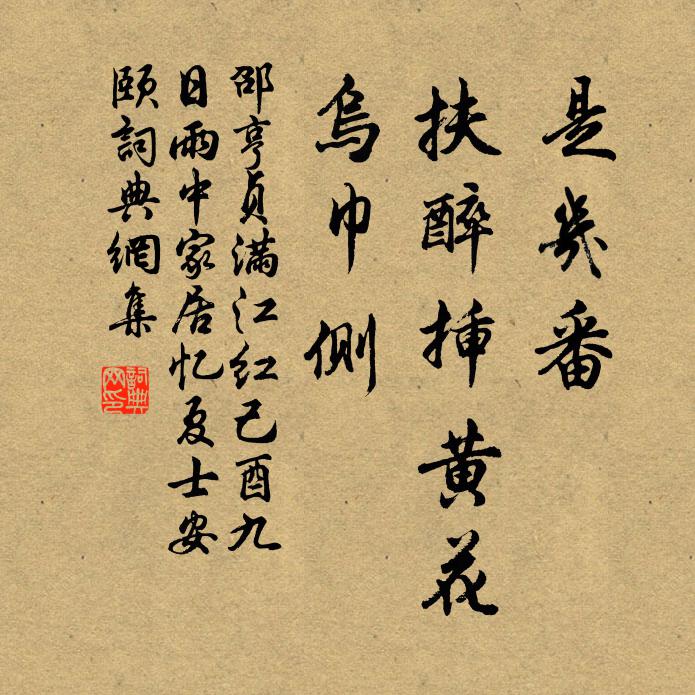 是幾番
扶醉挿黄花
烏巾側
邵亨貞滿江紅己酉九
日雨中家居忆夏士安
頤詞典網集
詞典
网印